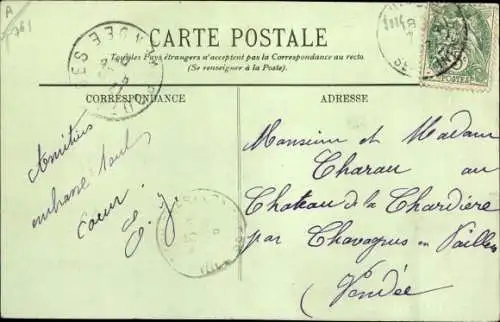 A
CARTE POSTALE
Tous les Pays étrangers n'acceptent pas la Correspondance au recto
(Se renseigner à la Poste).
CORRESPONDANCE
ADRESSE
Amitiés
cœur
Monsieur et Madame
Charau au
Chateau de la Chardière
par Chavagnes en Paillers
Vendée
POSTES